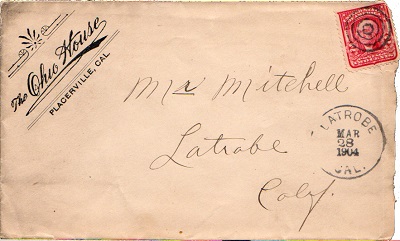 The Ohio House
PLACERVILLE, CAL.
Mr Mitchell
Latrobe
Calf.
LATROBE
MAR
28
1904
CAL.